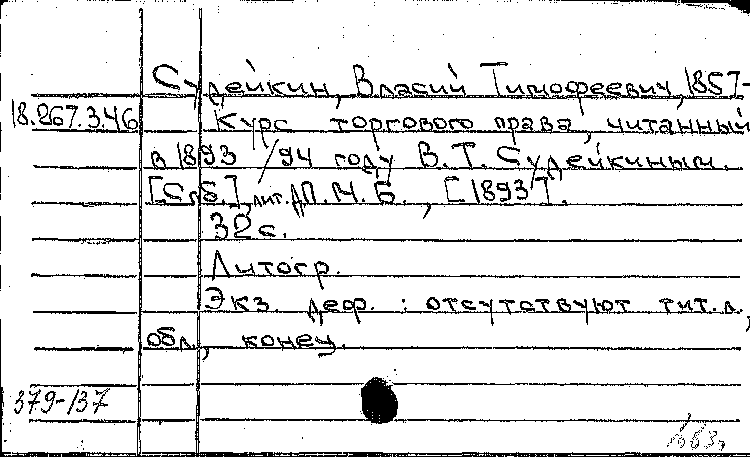 Судейкин, Власий Тимофеевич, 1857-
18.267.3.46 Курс торгового права, читанный
в 1893/94 году В.Т. Судейкиным.
[Спб.], лит. П.Ч.Б., [1893].
32 с.
Литогр.
Экз. деф.: отсутствуют тит.л.,
обл., конец.
379-137